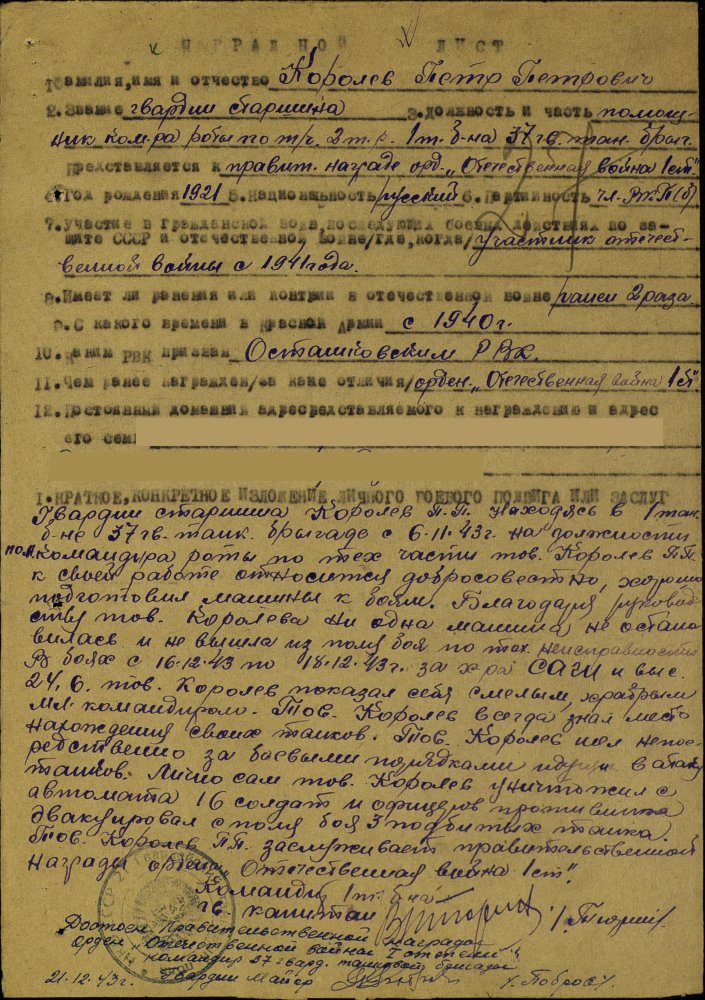 НАГРАДНОЙ ЛИСТ
1. Фамилия, имя и отчество Королев Петр Петрович
2. Звание гвардии старшина 3. должность и часть помощ-
ник ком-ра роты по т/ч. 2 т.р. 1 т. б-на 37 гв. тан. бриг.
Представляется к правит. награде орд. „Отечественная война 1 ст"
4. Год рождения 1921 5. Национальность русский 6. Партийность чл. ВКП(б)
7. Участие в гражданской войне, последующих боевых действиях по за-
щите СССР и отечественной войне /где, когда/ участник отечест-
венной войны с 1941 года.
8. Имеет ли ранения или контузии в отечественной войне ранен 2 раза.
9. С какого времени в Красной Армии с 1940 г.
10. Каким РВК призван Осташковским РВК.
11. Чем ранее награжден /за какие отличия/ орден. „Отечественная война 1 ст"
12. Постоянный домашний адрес представляемого к награждению и адрес
его семьи
I. КРАТКОЕ, КОНКРЕТНОЕ ИЗЛОЖЕНИЕ ЛИЧНОГО БОЕВОГО ПОДВИГА ИЛИ ЗАСЛУГ
Гвардии старшина Королев П.П. находясь в 1 тан.
б-не 37 гв. танк. бригаде с 6.11.43 г. на должности
пом. командира роты по тех части тов. Королев П.П.
к своей работе относится добросовестно, хорошо
подготовил машины к боям. Благодаря руковод
ству тов. Королева ни одна машина не остано
вилась и не вышла из поля боя по тех. неисправности
В боях с 16.12.43 по 18.12.43 г. за САГИ и выс.
24,6. тов. Королев показал себя смелым, храбрым
мл. командиром. Тов. Королев всегда знал место
нахождения своих танков. Тов. Королев шел непос-
редственно за боевыми порядками идущих в атаку
танков. Лично сам тов. Королев уничтожил с
автомата 16 солдат и офицеров противника
эвакуировал с поля боя 3 подбитых танка.
Тов. Королев П.П. заслуживает правительственной
награды орден „Отечественная война 1 ст".
Командир 1 т. б-на
гв. капитан
Достоин Правительственной награды
орден „Отечественной войны I степени"
командир 37 гвард. танковой бригады
21.12.43 г. Гвардии Майор